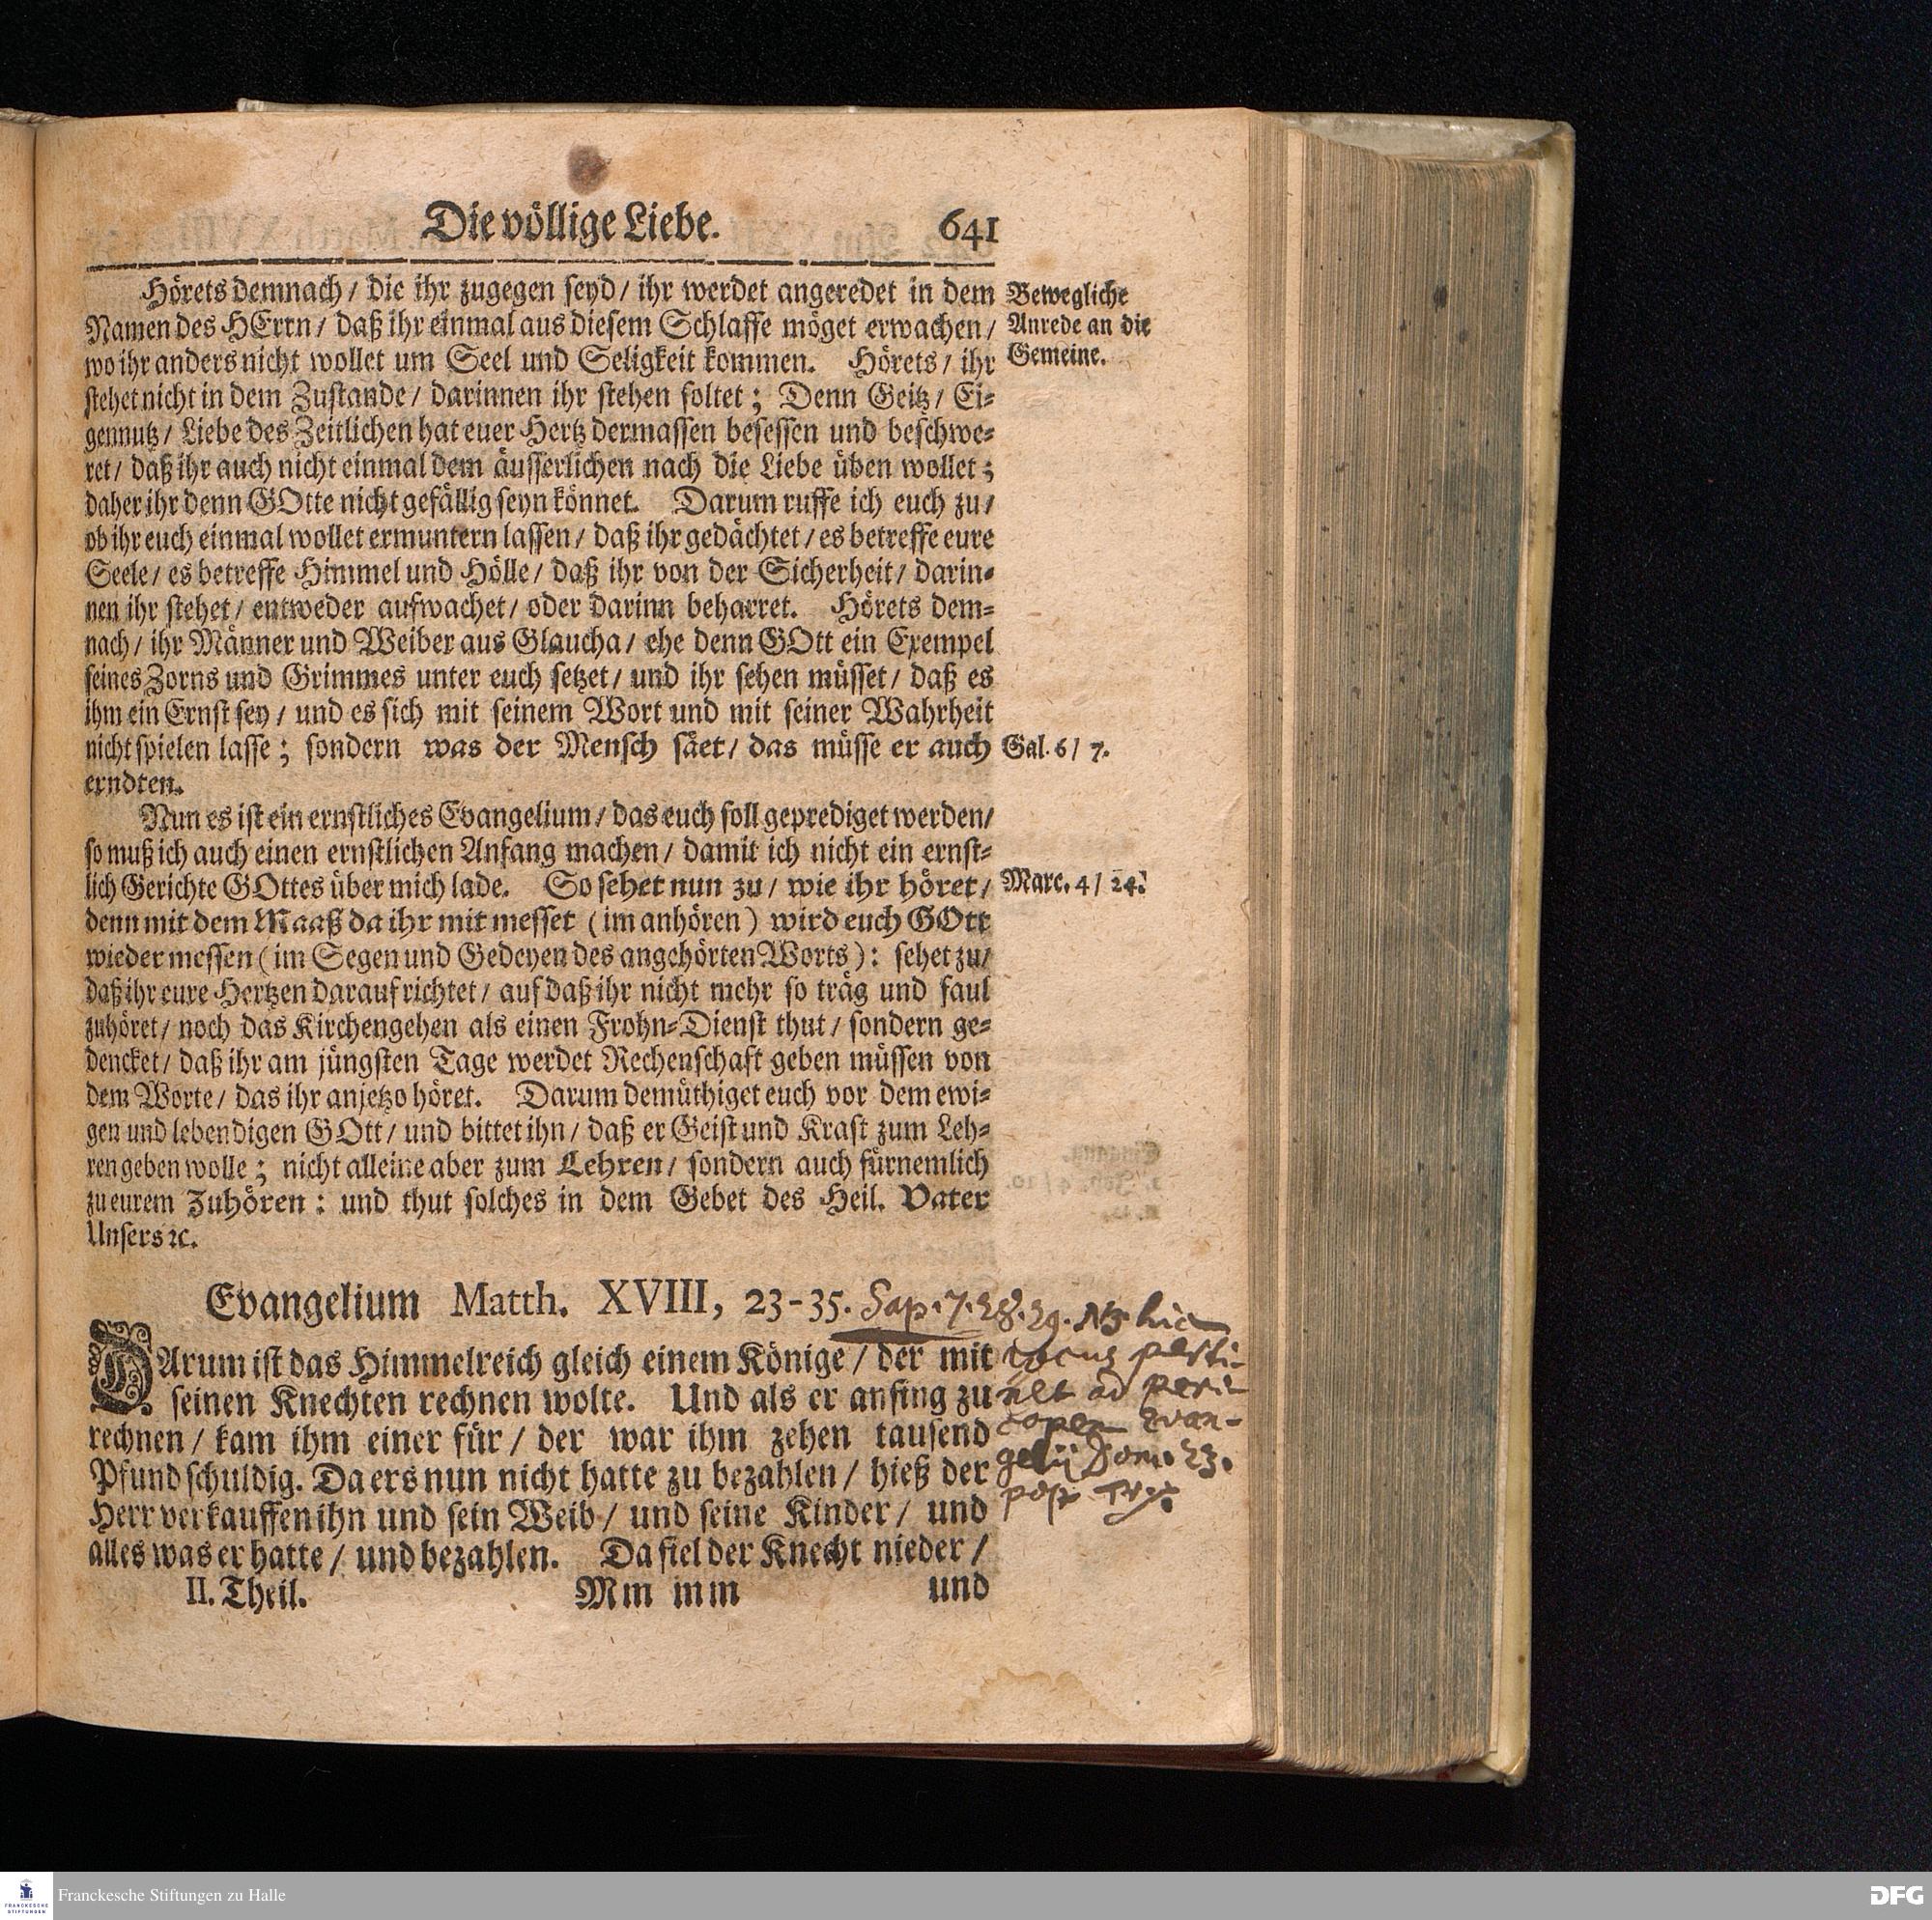 Die völlige Liebe. 641
Hörets demnach / die ihr zugegen seyd / ihr werdet angeredet in dem
Namen des HErrn / daß ihr einmal aus diesem Schlaffe möget erwachen /
wo ihr anders nicht wollet um Seel und Seligkeit kommen. Hörets / ihr
stehet nicht in dem Zustande / darinnen ihr stehen soltet; Denn Geitz / Ei-
gennutz / Liebe des Zeitlichen hat euer Hertz dermassen besessen und beschwe-
ret / daß ihr auch nicht einmal dem äusserlichen nach die Liebe üben wollet;
daher ihr denn GOtte nicht gefällig seyn könnet. Darum ruffe ich euch zu /
ob ihr euch einmal wollet ermuntern lassen / daß ihr gedächtet / es betreffe eure
Seele / es betreffe Himmel und Hölle / daß ihr von der Sicherheit / darin-
nen ihr stehet / entweder aufwachet / oder darinn beharret. Hörets dem-
nach / ihr Männer und Weiber aus Glaucha / ehe denn GOtt ein Exempel
seines Zorns und Grimmes unter euch setzet / und ihr sehen müsset / daß es
ihm ein Ernst sey / und es sich mit seinem Wort und mit seiner Wahrheit
nicht spielen lasse; sondern was der Mensch säet / das müsse er auch
erndten.
Nun es ist ein ernstliches Evangelium / das euch soll geprediget werden /
so muß ich auch einen ernstlichen Anfang machen / damit ich nicht ein ernst-
lich Gerichte GOttes über mich lade. So sehet nun zu / wie ihr höret /
denn mit dem Maaß da ihr mit messet (im anhören) wird euch GOtt
wieder messen (im Segen und Gedeyen des angehörten Worts): sehet zu /
daß ihr eure Hertzen darauf richtet / auf daß ihr nicht mehr so träg und faul
zuhöret / noch das Kirchengehen als einen Frohn-Dienst thut / sondern ge-
dencket / daß ihr am jüngsten Tage werdet Rechenschaft geben müssen von
dem Worte / das ihr anjetzo höret. Darum demüthiget euch vor dem ewi-
gen und lebendigen GOtt / und bittet ihn / daß er Geist und Kraft zum Leh-
ren geben wolle; nicht alleine aber zum Lehren / sondern auch fürnemlich
zu eurem Zuhören: und thut solches in dem Gebet des Heil. Vater
Unsers ꝛc.
Bewegliche
Anrede an die
Gemeine.
Gal. 6 / 7.
Marc. 4 / 24.
Evangelium Matth. XVIII, 23-35. Sap. 7. 28. 29. NB hic
DArum ist das Himmelreich gleich einem Könige / der mit
seinen Knechten rechnen wolte. Und als er anfing zu
rechnen / kam ihm einer für / der war ihm zehen tausend
Pfund schuldig. Da ers nun nicht hatte zu bezahlen / hieß der
Herr verkauffen ihn und sein Weib / und seine Kinder / und
alles was er hatte / und bezahlen. Da fiel der Knecht nieder /
II. Theil. Mm mm und
locus perti-
ad peri-
copen Evan-
gelii Dom. 23.
post
Franckesche Stiftungen zu Halle
FRANCKESCHE
STIFTUNGEN
DFG